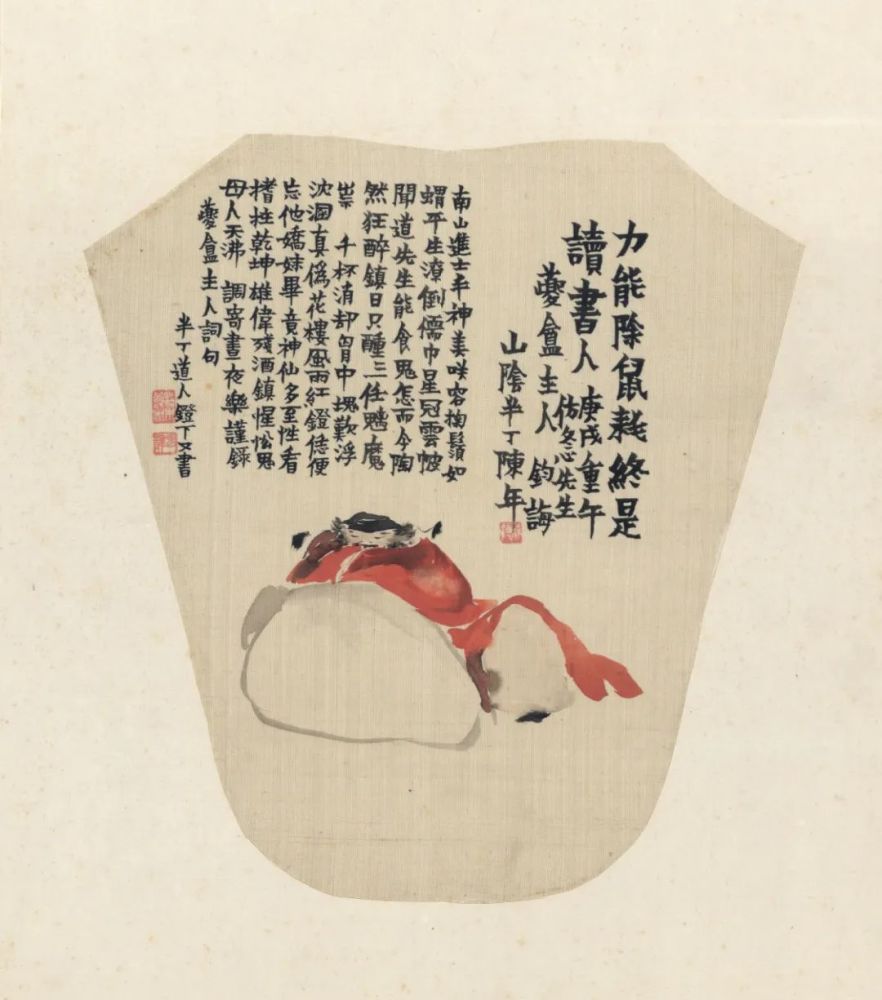 力能除鼠耗終是
讀書人 庚戌重午
仿冬心先生
夔盦主人 鈞誨
山陰半丁陳年
南山進士丰神美咲容掬鬚如
蝟平生潦倒儒巾星冠雲帔
聞道先生能食鬼怎而今陶
然狂醉鎮日只醺三任魑魔
祟 千杯消却胷中塊歎浮
沈溷真偽花樓風雨紅鐙恁便
忘他嬌妹畢竟神仙多至性看
搘拄乾坤雄偉殘酒鎮惺忪鬼
母人天沸 調寄晝夜樂謹錄
夔盦主人詞句
半丁道人鐙下又書